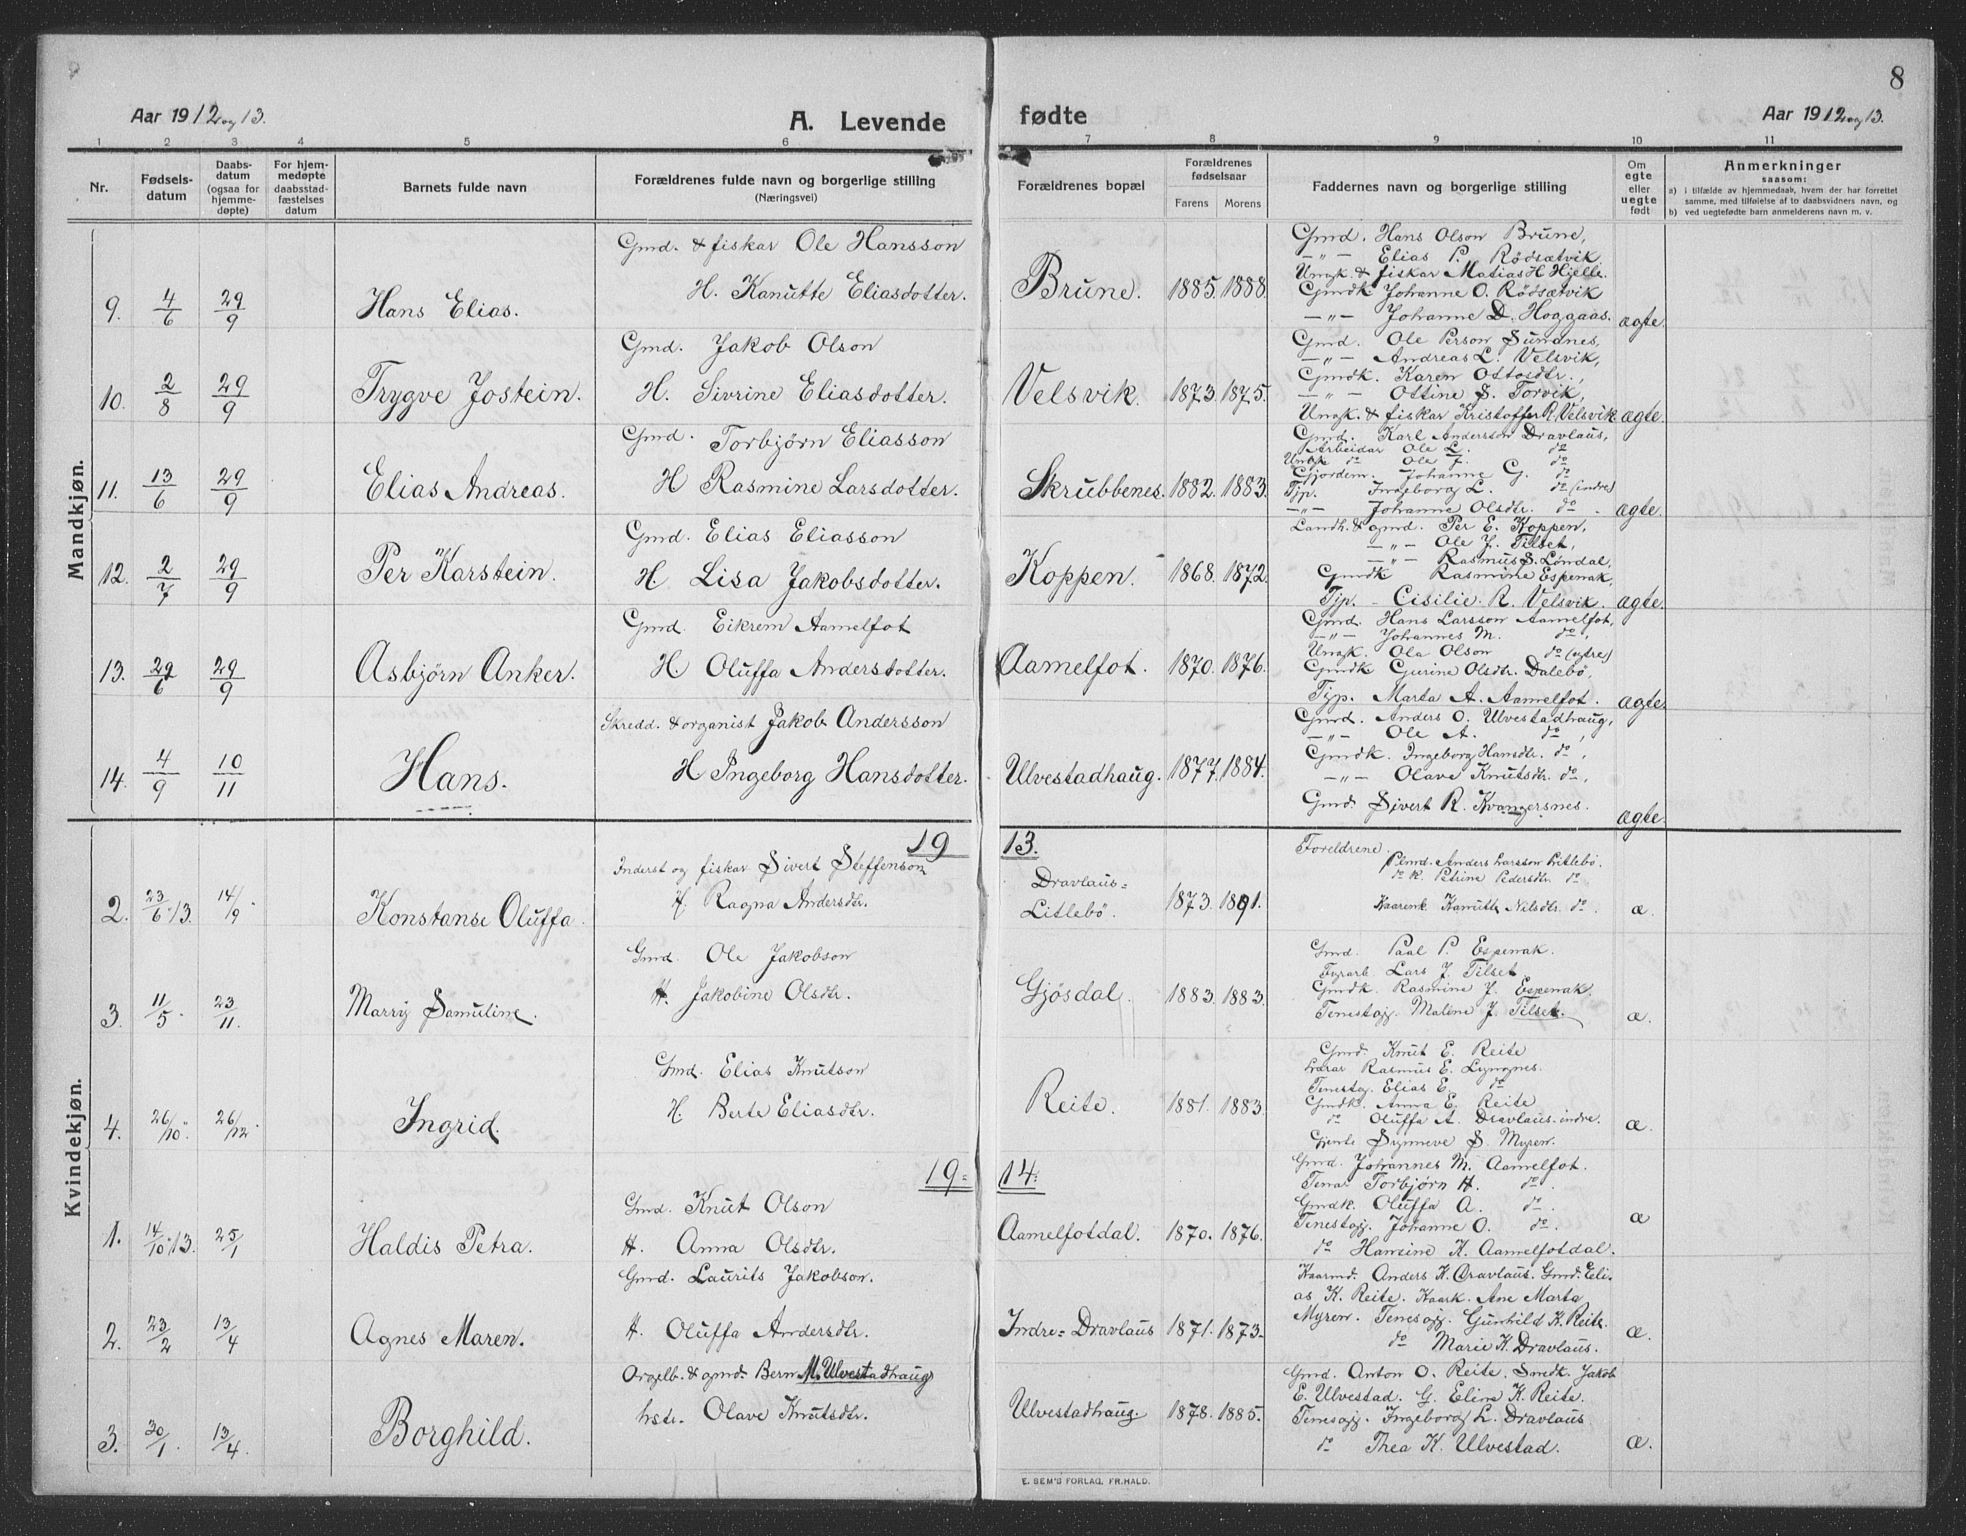 8
Aar 1912 og 13.
A. Levende fødte
Aar 1912 og 13.
1 2 3 4 5 6 7 8 9 10 11
Nr.
Fødsels-
datum
Daabs-
datum
(ogsaa for
hjemme-
døpte)
For hjem-
medøpte
daabsstad-
fæstelses
datum
Barnets fulde navn
Forældrenes fulde navn og borgerlige stilling
(Næringsvei)
Forældrenes bopæl
Forældrenes
fødselsaar
Farens Morens
Faddernes navn og borgerlige stilling
Om
egte
eller
uegte
født
Anmerkninger
saasom:
a) i tilfælde av hjemmedaab, hvem der har forrettet
samme, med tilføielse af to daabsvidners navn, og
b) ved uegtefødte barn anmelderens navn m. v.
Mandkjøn.
9. 4/6 29/9 Hans Elias.
Gmd. & fiskar Ole Hansson
H. Kanutte Eliasdotter.
Brune. 1885. 1888.
Gmd. Hans Olson Brune,
—"— Elias P. Rödsætvik
Ungk. & fiskar Matias H. Hjelle.
Gmdk Johanne O. Rödsætvik
—"— Johanne D. Hoggaas.
ægte.
10. 2/8 29/9 Trygve Jostein.
Gmd. Jakob Olson
H. Sivrine Eliasdotter.
Velsvik. 1873. 1875.
Gmd. Ole Person Sunnanes,
—"— Andreas L. Velsvik,
Gmdk. Karen Ottosdtr.,
—"— Ottine S. Torvik,
Ungk. & fiskar Kristoffer R. Velsvik
ægte.
11. 13/6 29/9 Elias Andreas.
Gmd. Torbjørn Eliasson
H Rasmine Larsdotter.
Skrubbenes. 1882. 1883.
Gmd. Karl Andersson Dravlaus,
Arbeidar Ole L. do
Ungk do Ole J. do
Gjordem. Johanne G. do
Tjp. Ingeborg L. do (indre)
—"— Johanne Olsdtr. do.
ægte.
12. 2/7 29/9 Per Karstein.
Gmd. Elias Eliasson
H. Lisa Jakobsdotter.
Koppen. 1868. 1872.
Landh. & gmd. Per E. Koppen,
—"— Ole J. Tilset,
—"— Rasmus S. Løndal,
Gmdk Rasmine Espenak,
Tjp. Cisilie R. Velsvik.
ægte.
13. 29/6 29/9 Asbjørn Anker.
Gmd. Eikrem Aamelfot
H Oluffa Andersdotter.
Aamelfot. 1870. 1876.
Gmd. Hans Larsson Aamelfot,
—"— Johannes M. do,
Ungk. Ola Olson do (ytre)
Gmdk Gurine Olsdtr. Dalebö,
Tjp. Marta A. Aamelfot.
ægte.
14. 4/9 10/11 Hans.
Skredd. & organist Jakob Andersson
H Ingeborg Hansdotter.
Ulvestadhaug. 1877. 1884.
Gmd. Anders O. Ulvestadhaug,
—"— Ole A. do,
Gmdk. Ingeborg Hansdtr. do,
—"— Olave Knutsdtr. do,
Gmd. Sivert R. Kvangersnes.
ægte.
Kvindekjøn.
1913.
2. 23/6 13. 14/9. Konstanse Oluffa
Inderst og fiskar Sivert Steffenson
H. Ragna Andersdtr.
Dravlaus=
Litlebö. 1873. 1891.
Foreldrene.
Gmd. Anders Larsson Litlebö.
do k. Petrine Pedersdtr. do
Kaarenk. Kanutte Nilsdtr. do.
æ.
3. 11/5. 23/11. Marry Samuline.
Gmd. Ole Jakobson
H. Jakobine Olsdtr.
Gjösdal. 1883. 1883.
Gmd. Paal P. Espenak.
Fyrarb. Lars J. Tilset
Gmdk. Rasmine J. Espenak.
Tenestgj. Maline J. Tilset.
æ.
4. 26/10. 26/12. Ingrid.
Gmd. Elias Knutson
H. Berte Eliasdtr.
Reite. 1881. 1883.
Gmd. Knut E. Reite
Lærar Rasmus E. Lyngnes.
Tenestg. Elias E. do
Gmdk. Anna E. Reite
do Oluffa A. Dravlaus-indre.
Gjente Synneve S. Myren.
æ.
19=14.
1. 14/10 13. 25/1 Haldis Petra.
Gmd. Knut Olson
H. Anna Olsdtr.
Aamelfotdal. 1870. 1876.
Gmd. Johannes M. Aamelfot.
Tenar Torbjørn H. do.
Gmdk. Oluffa A. do.
Tenestgj. Johanne O. do.
do Hansine K. Aamelfotdal.
æ
2. 23/2 13/4 Agnes Maren.
Gmd. Laurits Jakobson.
H. Oluffa Andersdtr.
Indre=Dravlaus 1871. 1873.
Kaarmd. Anders K. Dravlaus. Gmd. Eli-
as K. Reite. Kaark. Ane Marta
Myren. Tenestgj. Gunhild K. Reite.
do Marie K. Dravlaus.
æ.
3. 30/1. 13/4 Borghild.
Orgelb. & gmd. Bern M. Ulvestadhaug
hstr. Olave Knutsdtr.
Ulvestadhaug. 1878. 1885.
Gmd. Anton O. Reite. Smdk. Jakob
E. Ulvestad. G. Eline K. Reite.
Tenestgj. Ingeborg L. Dravlaus
do Thea K. Ulvestad.
æ.
E. SEM'S FORLAG, FR.HALD.